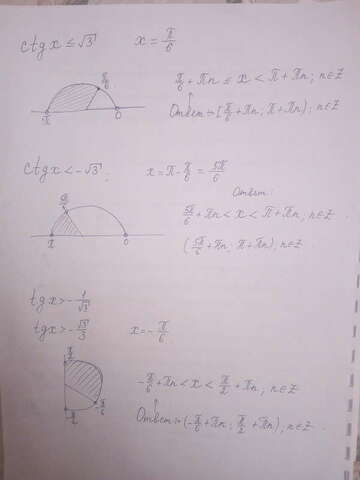 ctg x ≤ √3    x = π/6
π/6 + πn ≤ x < π + πn; n∈Z
π/6
π    0
Ответ: [π/6 + πn; π + πn); n∈Z
ctg x < -√3;    x = π - π/6 = 5π/6
Ответ:
5π/6
5π/6 + πn < x < π + πn, n∈Z
π    0
(5π/6 + πn; π + πn), n∈Z.
tg x > - 1/√3
tg x > - √3/3    x = - π/6
π/2
-π/6 + πn < x < π/2 + πn, n∈Z
-π/6
-π/2
Ответ: (-π/6 + πn; π/2 + πn), n∈Z.